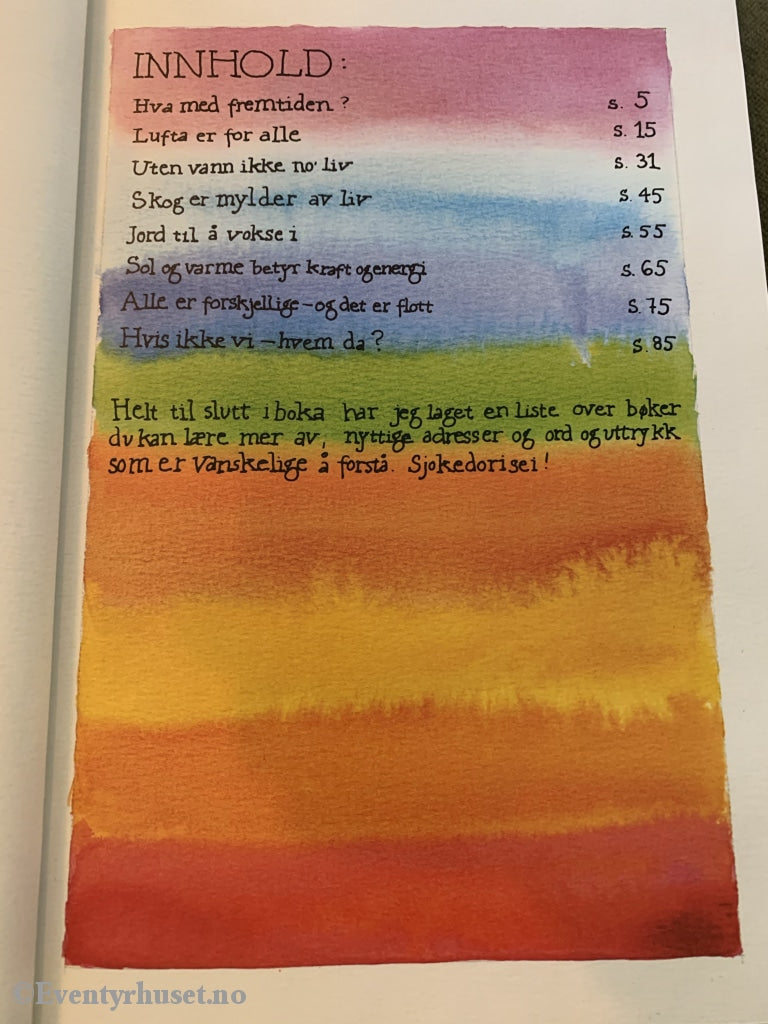 INNHOLD:
Hva med fremtiden? s. 5
Lufta er for alle s. 15
Uten vann ikke no' liv s. 31
Skog er mylder av liv s. 45
Jord til å vokse i s. 55
Sol og varme betyr kraft og energi s. 65
Alle er forskjellige – og det er flott s. 75
Hvis ikke vi – hvem da? s. 85
Helt til slutt i boka har jeg laget en liste over bøker
du kan lære mer av, nyttige adresser og ord og uttrykk
som er vanskelige å forstå. Sjokedorisei!
©Eventyrhuset.no